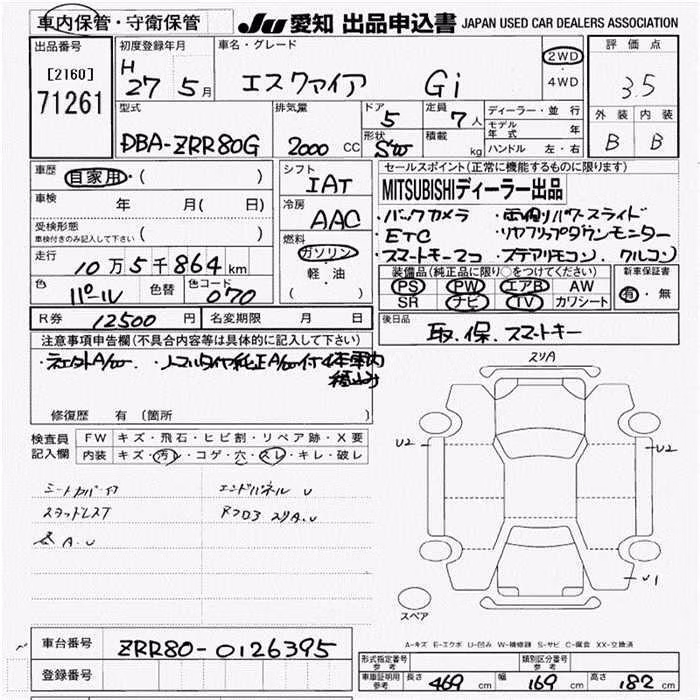 車内保管・守衛保管
JU 愛知 出品申込書 JAPAN USED CAR DEALERS ASSOCIATION
出品番号
[2160]
71261
初度登録年月
H 27 5月
車名・グレード
エスクァイア Gi
2WD
4WD
評価点
3.5
外装 内装
B B
型式
DBA-ZRR80G
排気量
2000 CC
ドア 5
定員 7人
形状 SW
積載 kg
ディーラー・並行
モデル年式 年
ハンドル 左・右
車歴 自家用・( )
車検 年 月( 日)
受検形態
車検付きのみ記入して下さい ( )
走行
10万5千864km
色 パール 色替 色コード 070
シフト
IAT
冷房
AAC
燃料
ガソリン
軽・油
( )
セールスポイント(正常に機能するものに限ります)
MITSUBISHIディーラー出品
・バックカメラ ・両側パワースライド
・ETC ・リヤフリップダウンモニター
・スマートキー2コ ・ステアリモコン、クルコン)
装備品(純正品に限り○をつけてください)
PS PW エアB AW
SR ナビ TV カワシート
新車保証書
有・無
R券 12500円 名変期限 月 日
後日品
取.保.スマートキー
注意事項申告欄(不具合内容等は具体的に記入して下さい)
・ノーマルタイヤ純正A/W付4本車内積込み
修復歴 有(箇所 )
検査員記入欄
FW キズ・飛石・ヒビ割・リペア跡・X要
内装 キズ・汚レ・コゲ・穴・スレ・キレ・破レ
シートカバー付 エンドパネル U
スタッドレス スリA.U
A.U
スリA
U2
U2
U1
スペア
A-キズ E-エクボ U-凹み W-補修跡 S-サビ C-腐食 XX-交換済
車台番号 ZRR80-0126395
登録番号
形式指定番号 参考 類別区分番号 参考
車庫証明用 参考 長さ 469 cm 幅 169 cm 高さ 182 cm